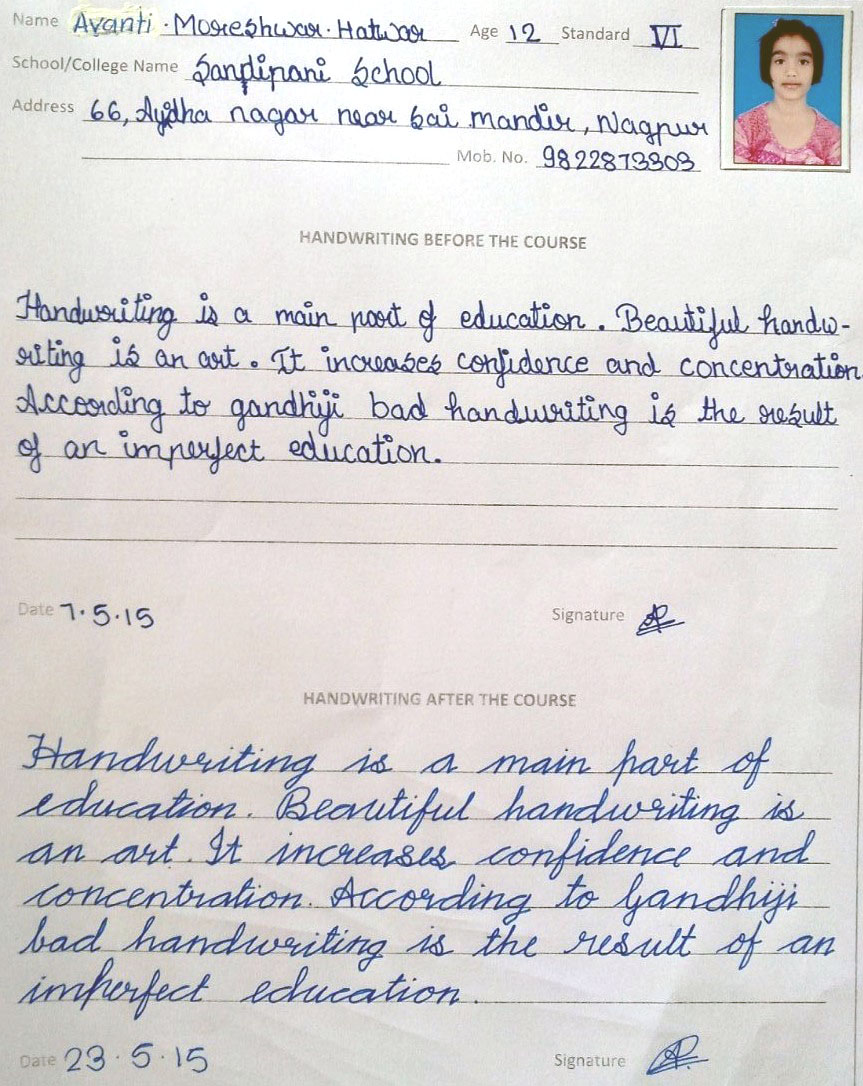 Name Avanti . Moreshwar . Hatwar Age 12 Standard VI
School/College Name Sandipani School
Address 66, nagar near Sai mandir, Nagpur
Mob. No. 9822873303
HANDWRITING BEFORE THE COURSE
Handwriting is a main part of education . Beautiful handw-
riting is an art . It increases confidence and concentration
According to gandhiji bad handwriting is the result
of an imperfect education.
Date 7.5.15 Signature
HANDWRITING AFTER THE COURSE
Handwriting is a main part of
education. Beautiful handwriting is
an art. It increases confidence and
concentration. According to Gandhiji
bad handwriting is the result of an
imperfect education.
Date 23.5.15 Signature